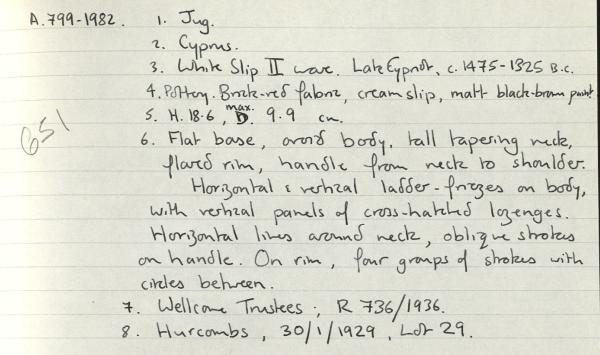 A.799-1982. 1. Jug.
2. Cyprus.
3. White Slip II ware. Late Cypriot, c. 1475-1325 B.C.
4. Pottery. Brick-red fabric, cream slip, matt black-brown paint
5. H. 18.6, max. D. 9.9 cm.
651
6. Flat base, ovoid body, tall tapering neck,
flared rim, handle from neck to shoulder.
Horizontal & vertical ladder-friezes on body,
with vertical panels of cross-hatched lozenges.
Horizontal lines around neck, oblique strokes
on handle. On rim, four groups of strokes with
circles between.
7. Wellcome Trustees; R 736/1936.
8. Hurcombs, 30/1/1929, Lot 29.